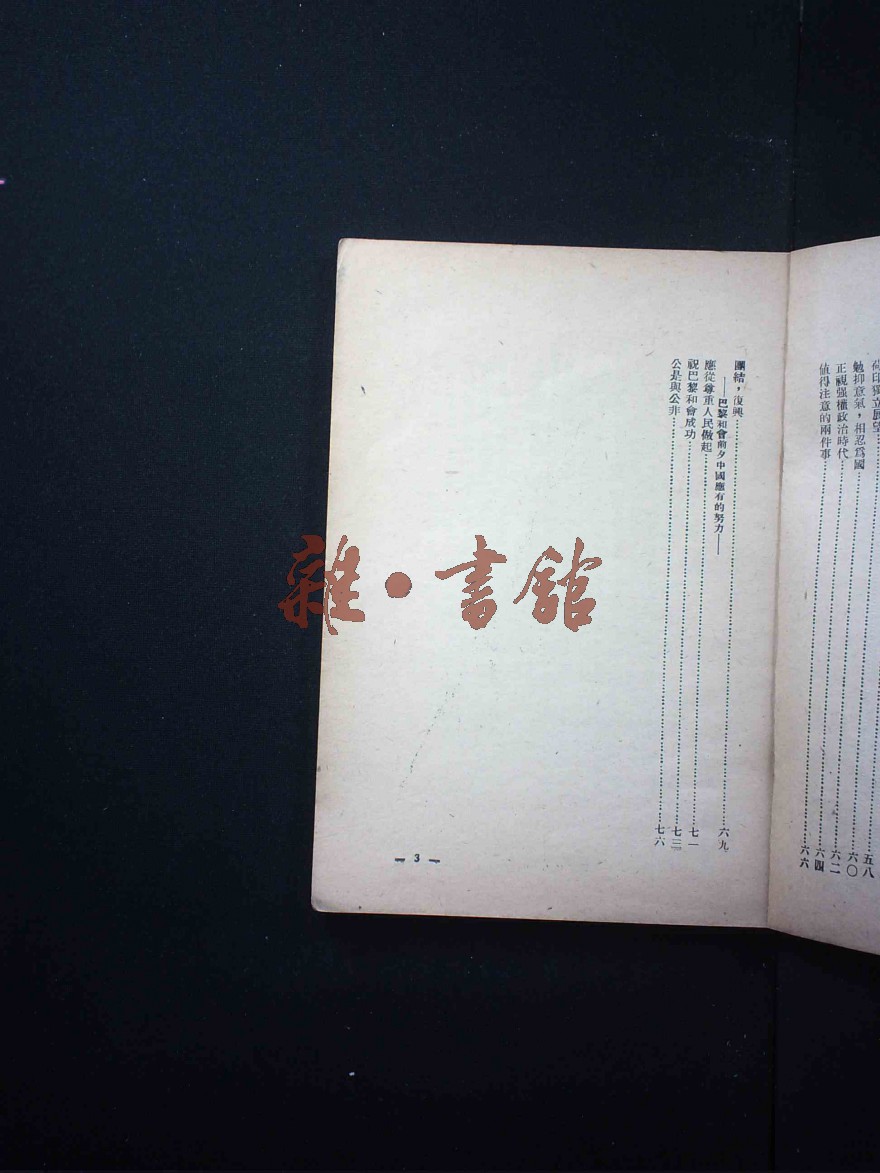 五八
荷印獨立展望……六〇
勉抑意氣，相忍爲國……六二
正視强權政治時代……六四
値得注意的兩件事……六六
團結，復興……六九
——巴黎和會前夕中國應有的努力——
應從尊重人民做起……七一
祝巴黎和會成功……七三
公是與公非……七六
— 3 —
雜·書館